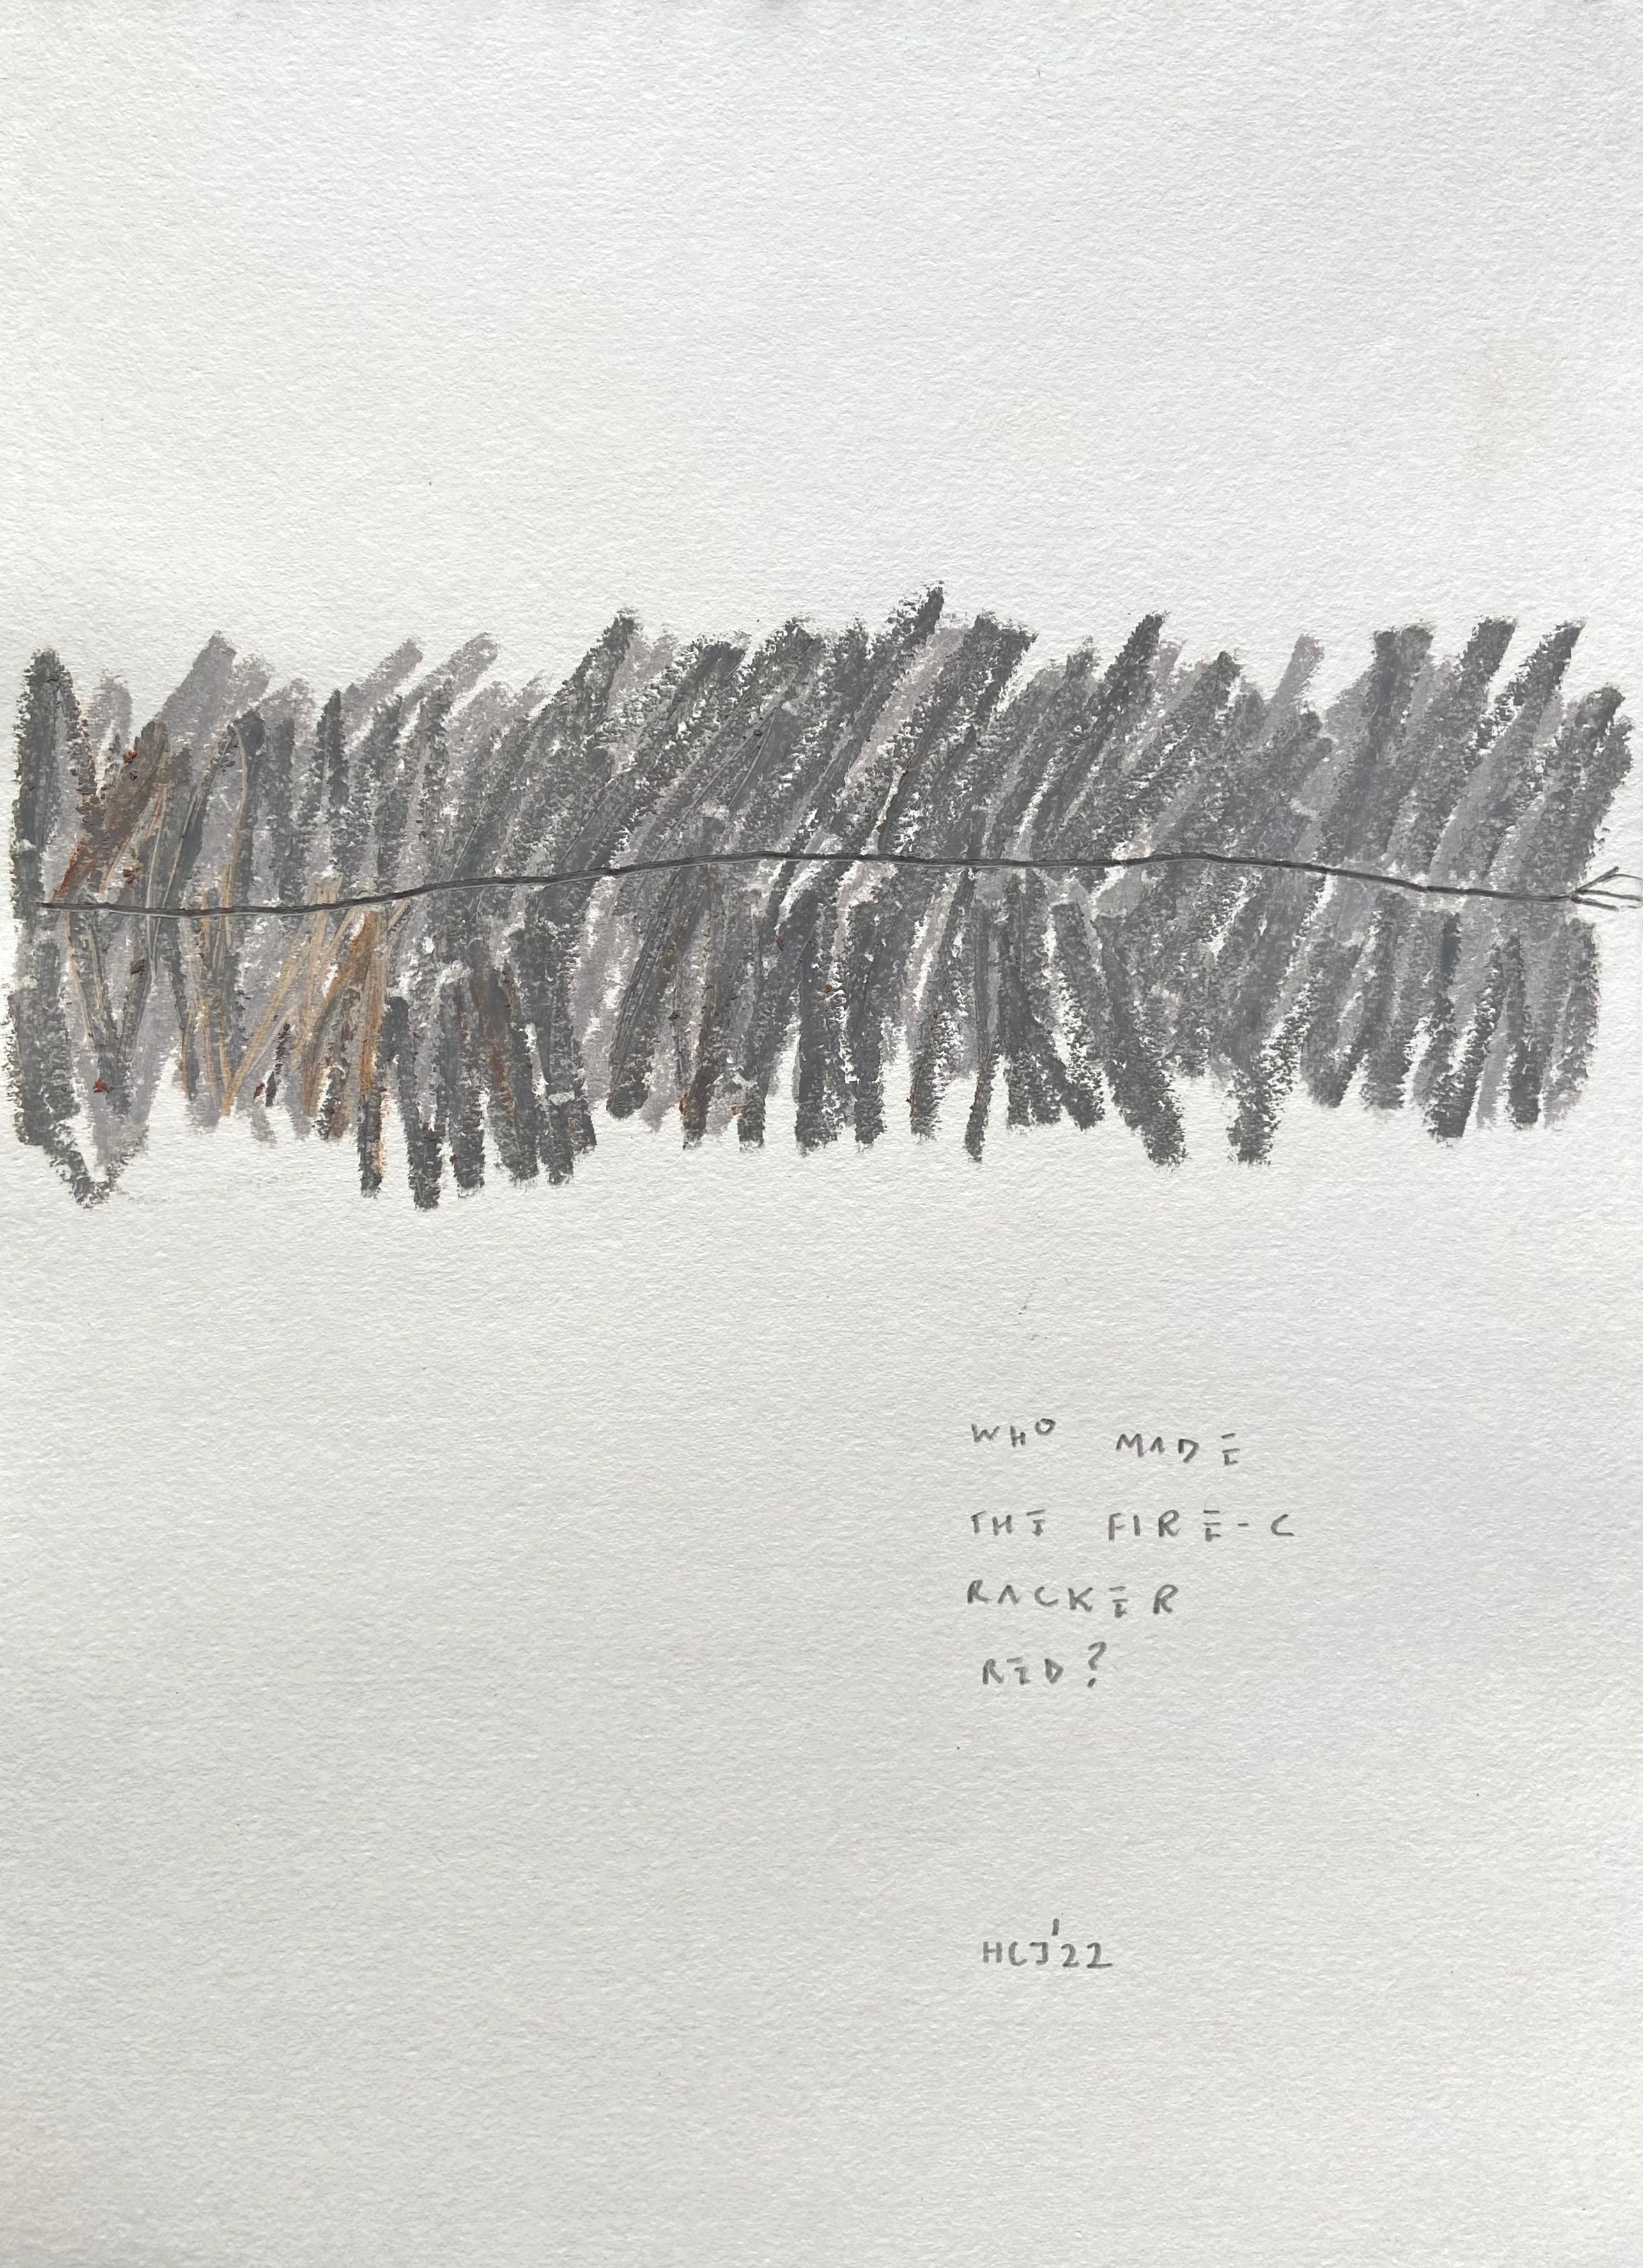 WHO MADE
THE FIRE-C
RACKER
RED?
HCJ'22